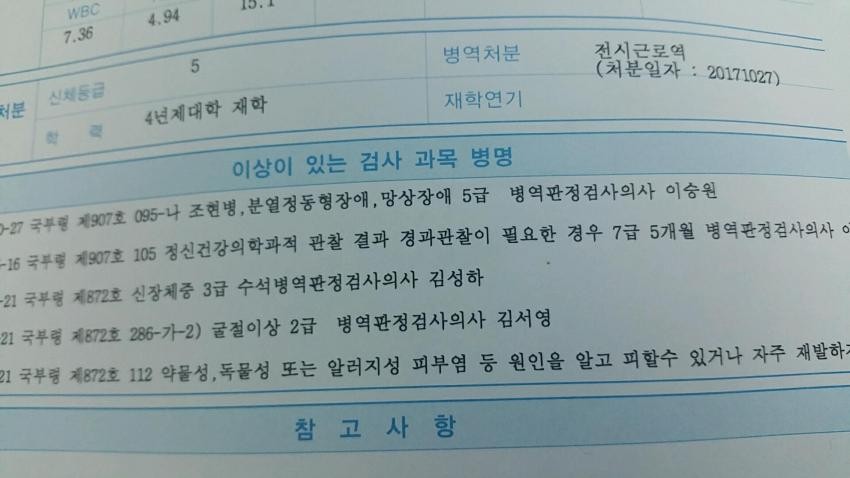 WBC
7.36 4.94 15.1
처분 신체등급 5 병역처분 전시근로역
(처분일자 : 20171027)
학 력 4년제대학 재학 재학연기
이상이 있는 검사 과목 병명
0-27 국부령 제907호 095-나 조현병,분열정동형장애,망상장애 5급 병역판정검사의사 이승원
-16 국부령 제907호 105 정신건강의학과적 관찰 결과 경과관찰이 필요한 경우 7급 5개월 병역판정검사의사
-21 국부령 제872호 신장체중 3급 수석병역판정검사의사 김성하
-21 국부령 제872호 286-가-2) 굴절이상 2급 병역판정검사의사 김서영
21 국부령 제872호 112 약물성,독물성 또는 알러지성 피부염 등 원인을 알고 피할수 있거나 자주 재발하
참 고 사 항